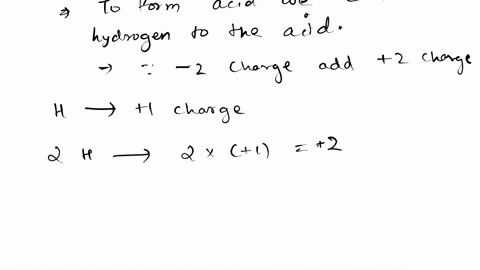 ⇒ To form acid we
hydrogen to the acid.
→ ∵ -2 charge add +2 charge
H → +1 charge
2 H → 2 × (+1) = +2